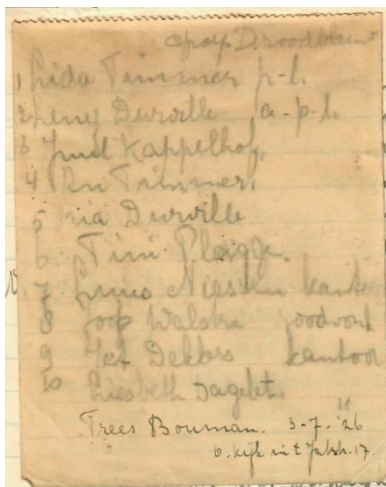 groep D. roodbruin
1 Lida Timmer p-l.
2 Leny Durville a-p-l.
3 Juul Kappelhof,
4 Rn Timmer,
5 ria Durville
6 Timi Plaigge.
7 Niesten
8 Joop Walstra
9 Jet Dekkers kantoor
10 Liesbeth Dagelet.
Trees Bouman. 3-7-'26
6. kijk in 't Jatstr. 17.